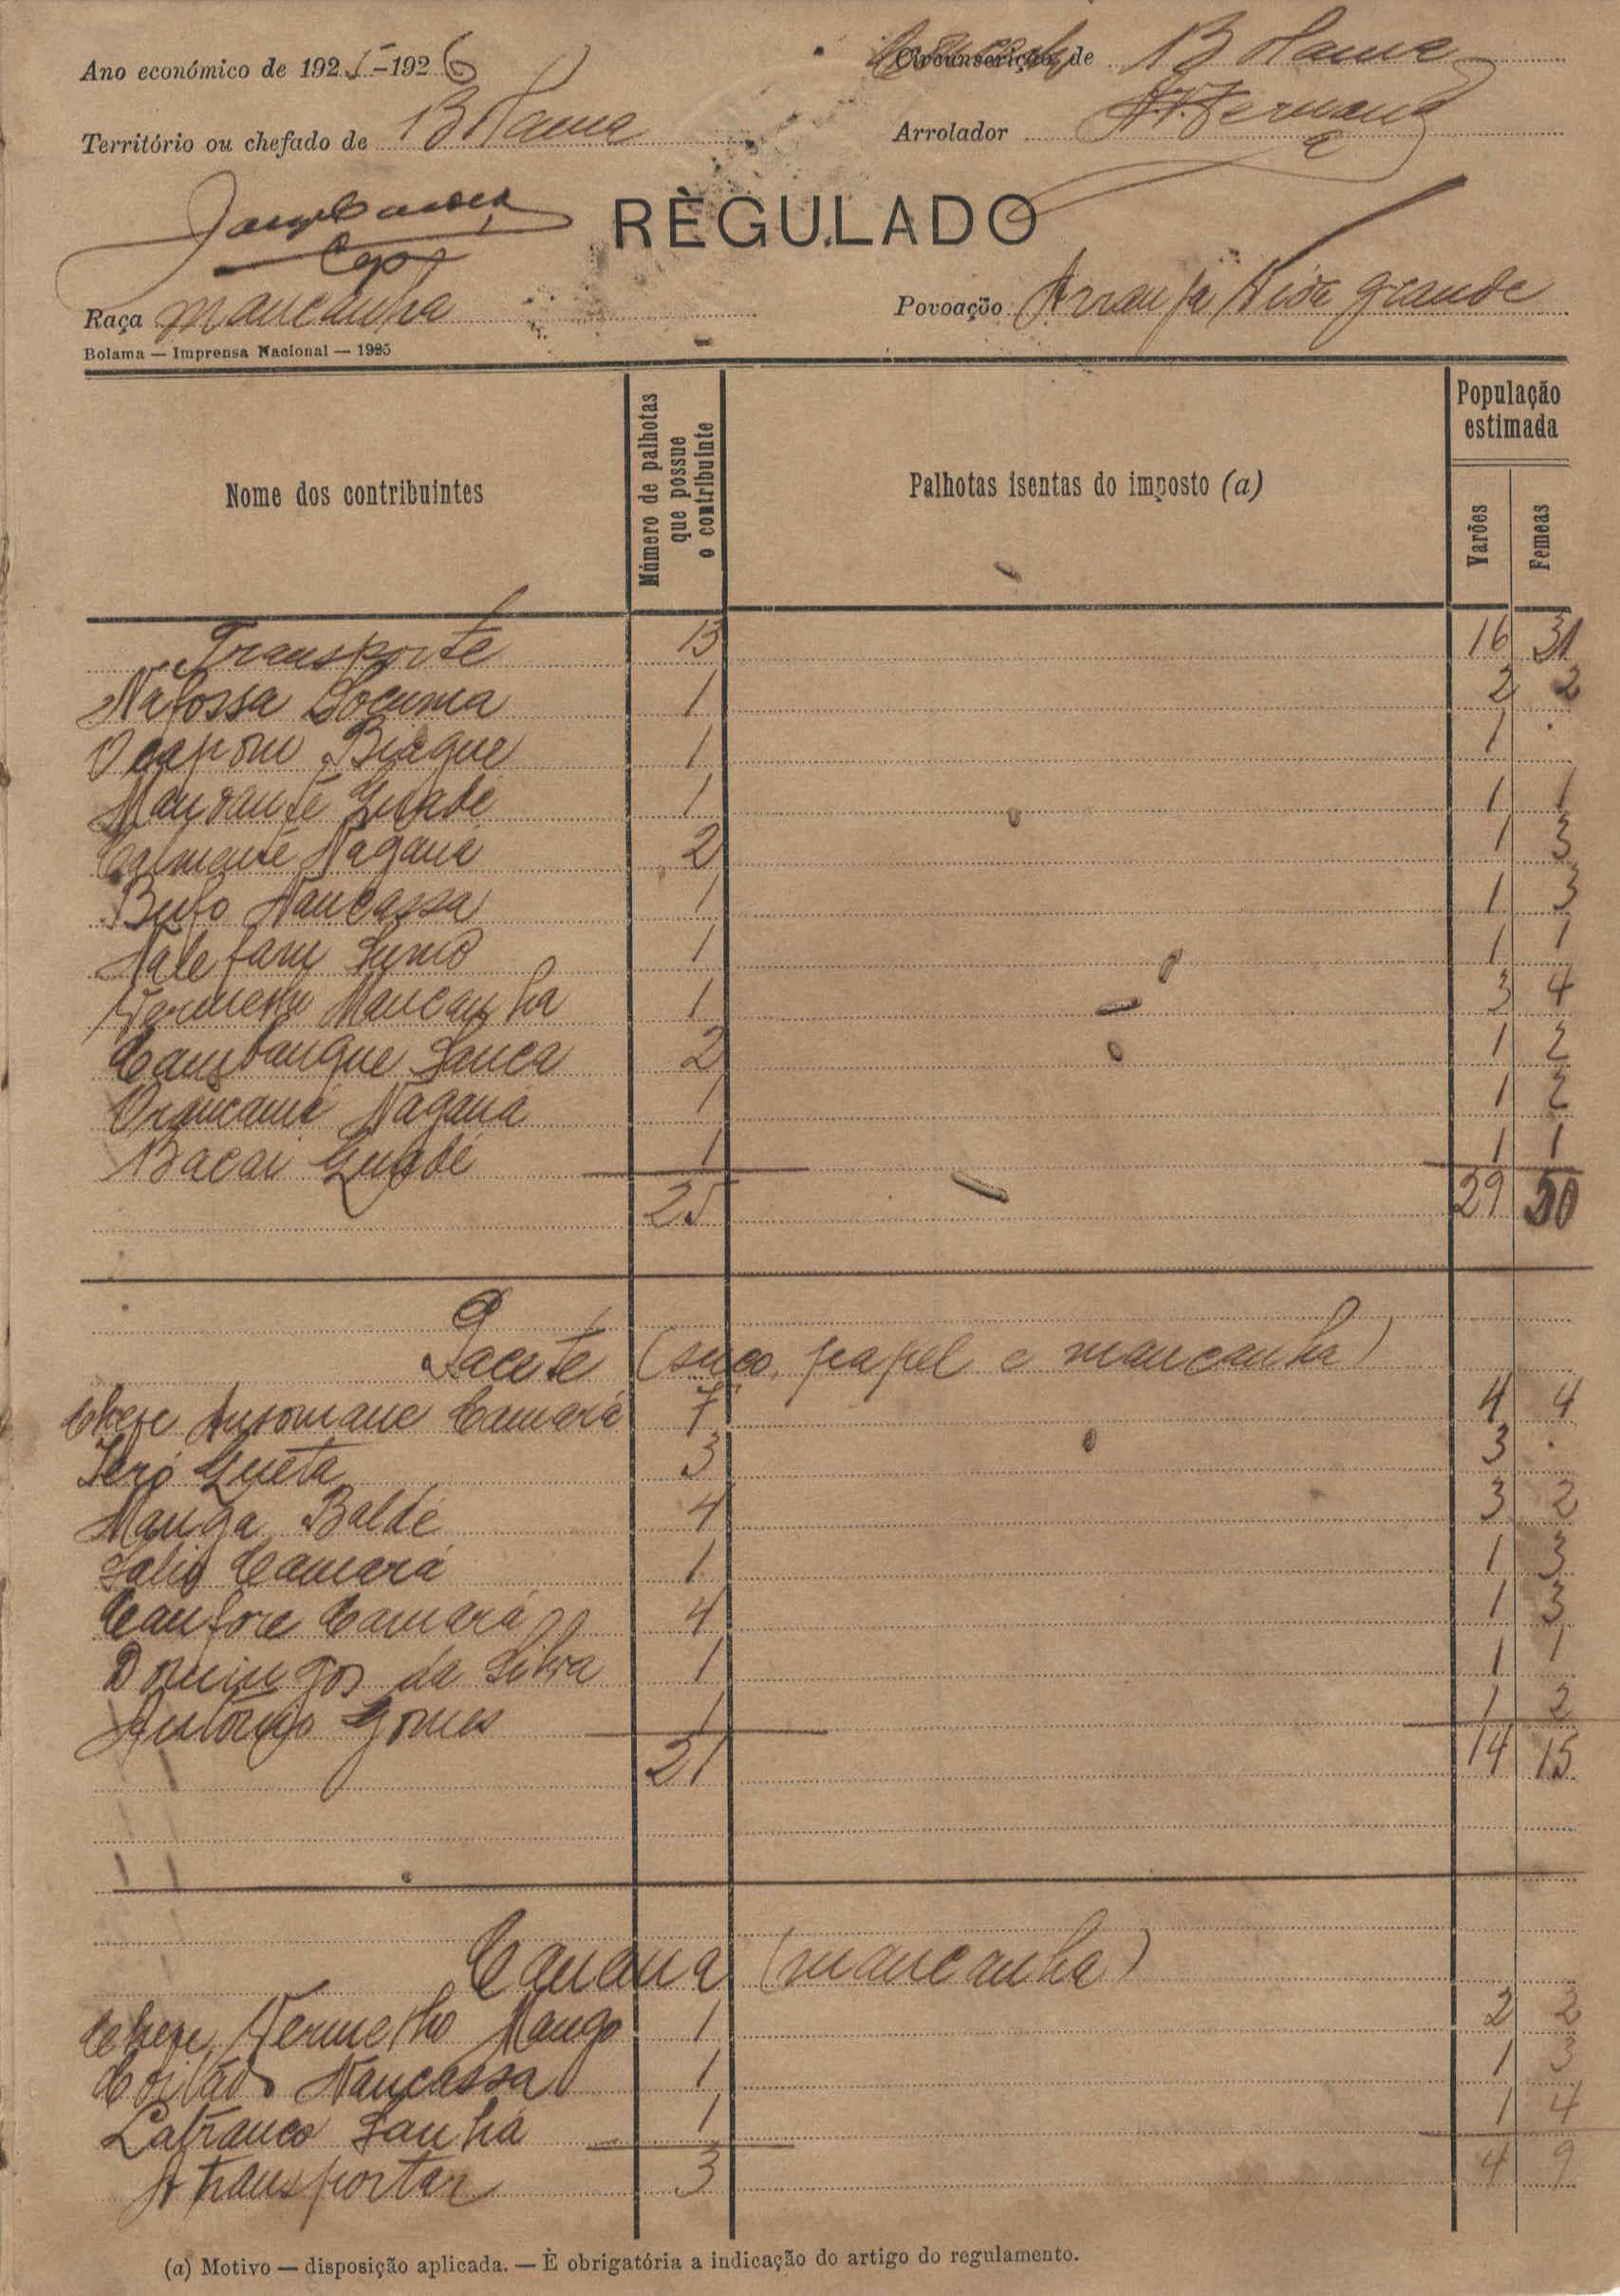 Ano económico de 1925-1926
Circunscrição de Bolama
Território ou chefado de Bolama
Arrolador Fernand
RÈGULADO
Raça mancanha
Povoação grande
Bolama — Imprensa Nacional — 1925
Nome dos contribuintes
Número de palhotas que possue o contribuinte
Palhotas isentas do imposto (a)
População estimada
Varões
Femeas
Transporte 13 16 31
Nafossa 1 2 2
Biague 1 1 .
Guabé 1 1 1
Nagana 2 1 3
Bufo Nancassa 1 1 3
1 1 1
Vermelho Mancanha 1 3 4
Cambanque Sanca 2 1 2
Nagana 1 1 2
Bacar Guabé 1 1 1
25 29 50
(suco, papel e mancanha)
Chefe Ansomane Camará 7 4 4
Iero Gueta 3 3 .
Manga Baldé 4 3 2
Salio Camará 1 1 3
Canfore Camará 4 1 3
Domingos da Silva 1 1 1
António Gomes 1 1 2
21 14 15
(mancanha)
Chefe, Vermelho Mango 1 2 2
Nancassa 1 1 3
Lafranco Sanhá 1 1 4
A transportar 3 4 9
(a) Motivo — disposição aplicada. — È obrigatória a indicação do artigo do regulamento.